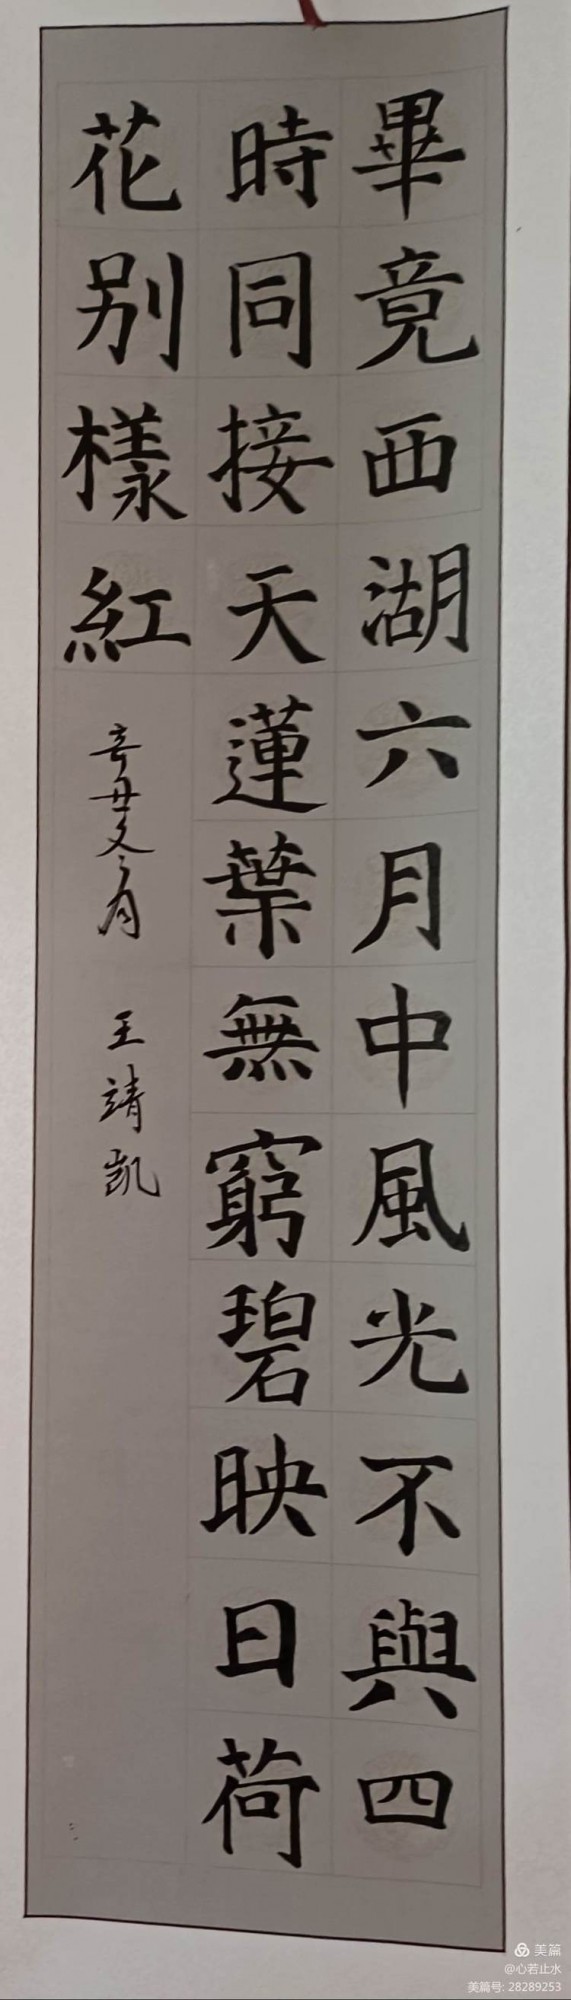 畢竟西湖六月中風光不與四
時同接天蓮葉無窮碧映日荷
花别樣紅
辛丑冬月 王靖凯
美篇
@心若止水
美篇号: 28289253